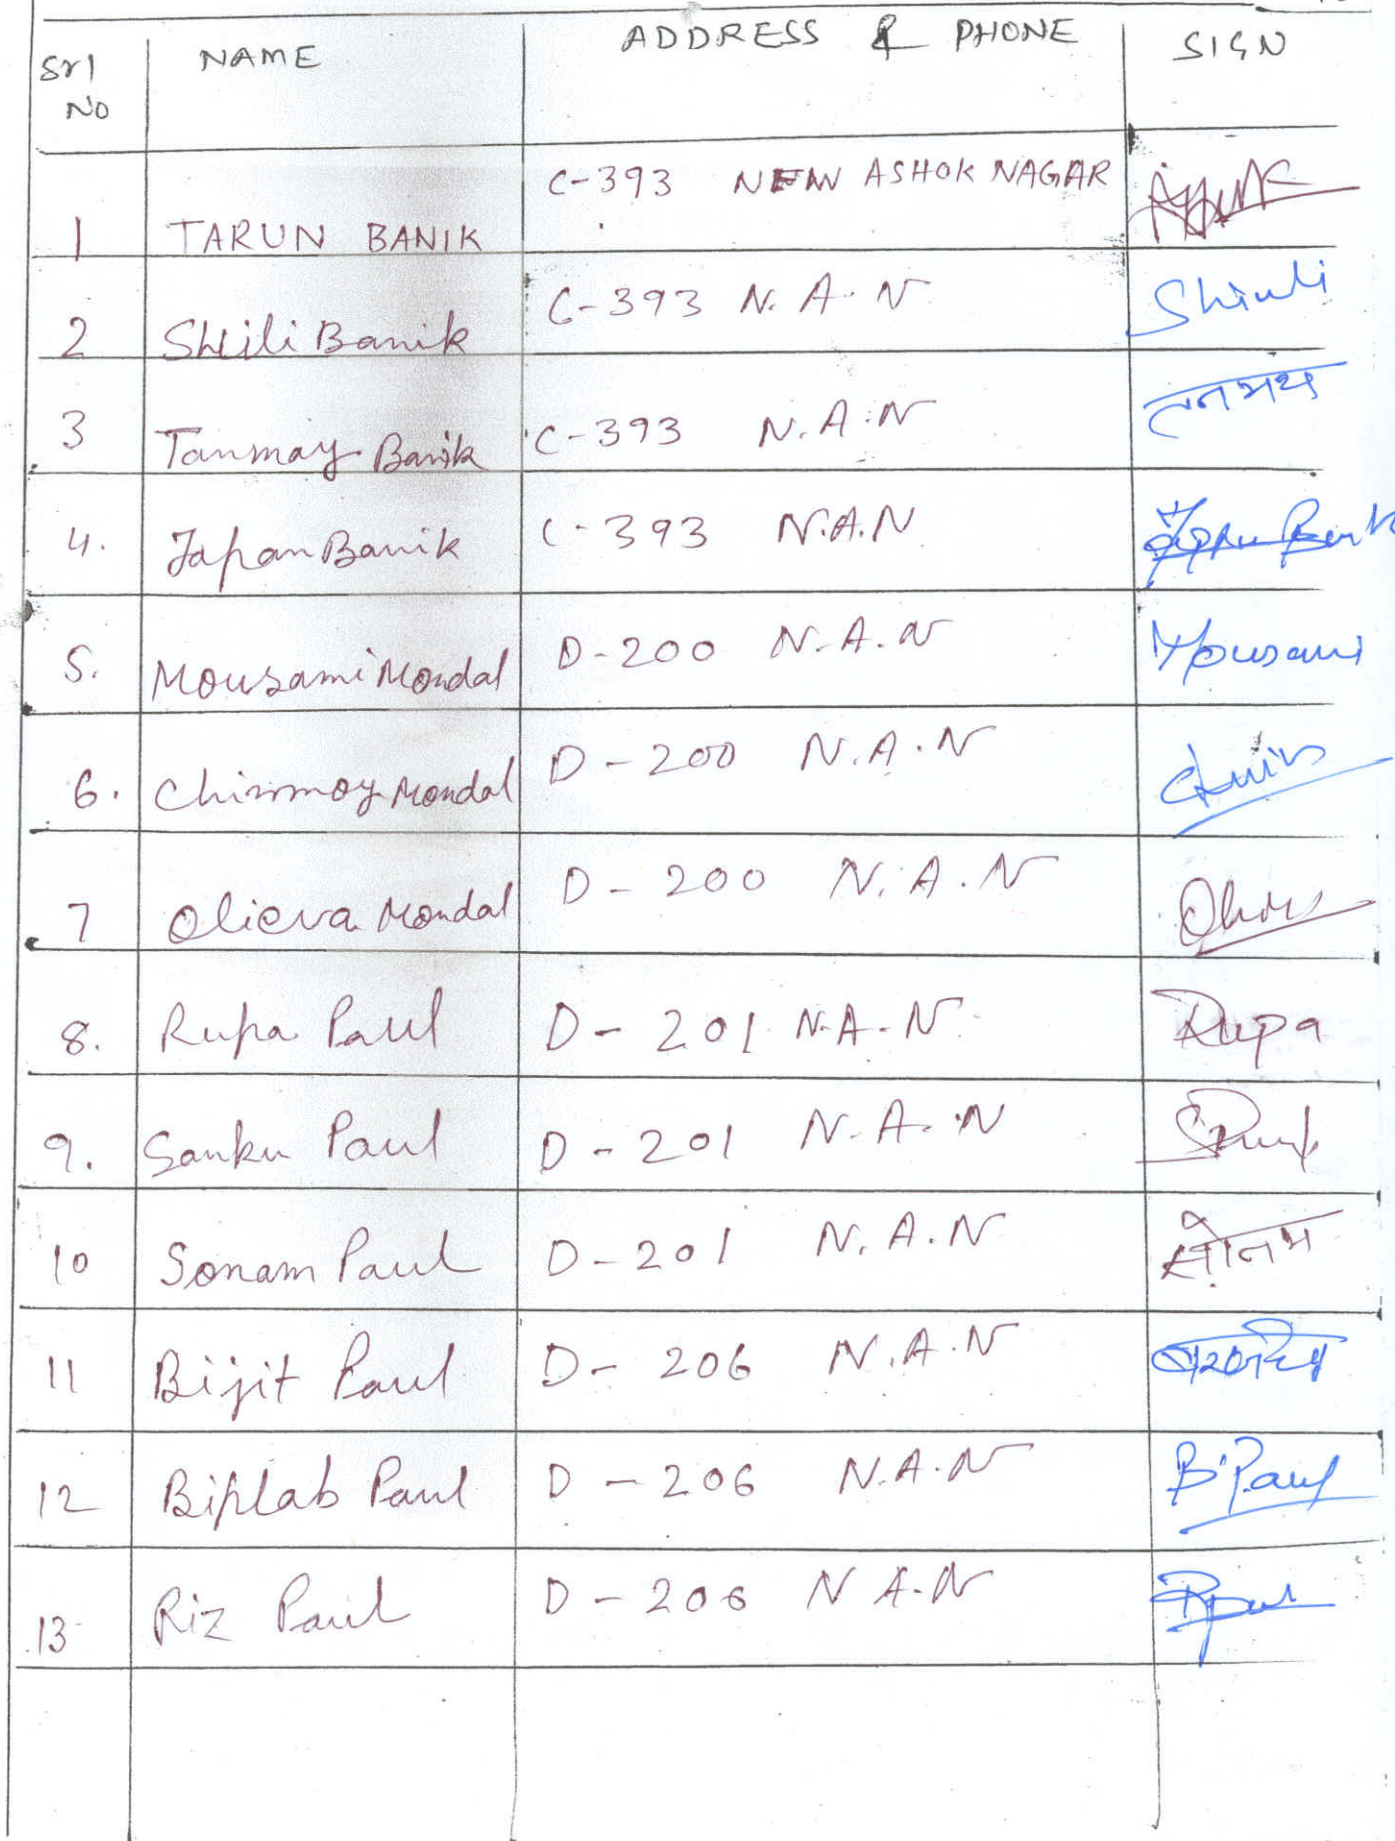 Srl No NAME ADDRESS & PHONE SIGN
1 TARUN BANIK C-393 NEW ASHOK NAGAR
2 Shili Banik C-393 N.A.N Shiuli
3 Tanmay Banik C-393 N.A.N तनमय
4. Tapan Banik C-393 N.A.N
5. Mousami Mondal D-200 N.A.N Mousami
6. Chinmoy Mondal D-200 N.A.N
7 Olieva Mondal D-200 N.A.N
8. Rupa Paul D-201 N.A.N Rupa
9. Sanku Paul D-201 N.A.N
10 Sonam Paul D-201 N.A.N सोनम
11 Bijit Paul D-206 N.A.N
12 Biplab Paul D-206 N.A.N B.Paul
13 Riz Paul D-206 N A.N RPaul